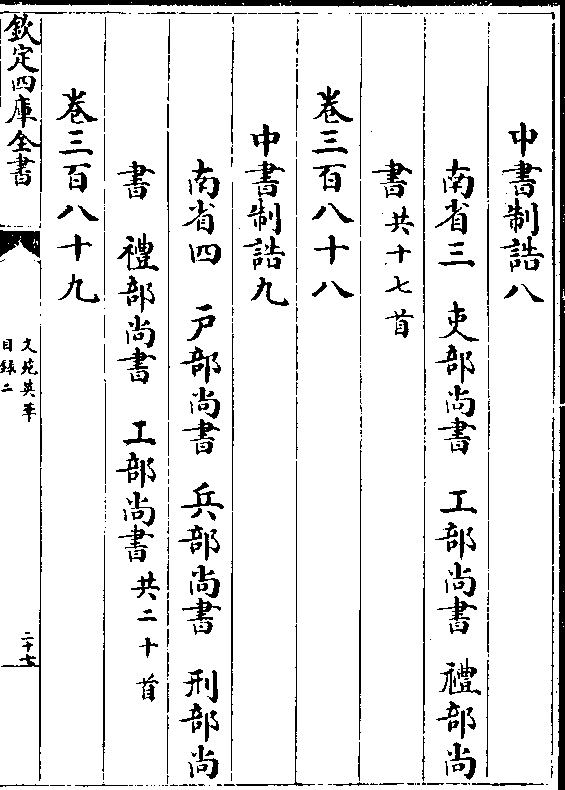 中書制誥八
南省三　吏部尚書　工部尚書　禮部尚
書共十七首
卷三百八十八
中書制誥九
南省四　戸部尚書　兵部尚書　刑部尚
書　禮部尚書　工部尚書共二十首
卷三百八十九
欽定四庫全書
文苑英華
目録二
二十七